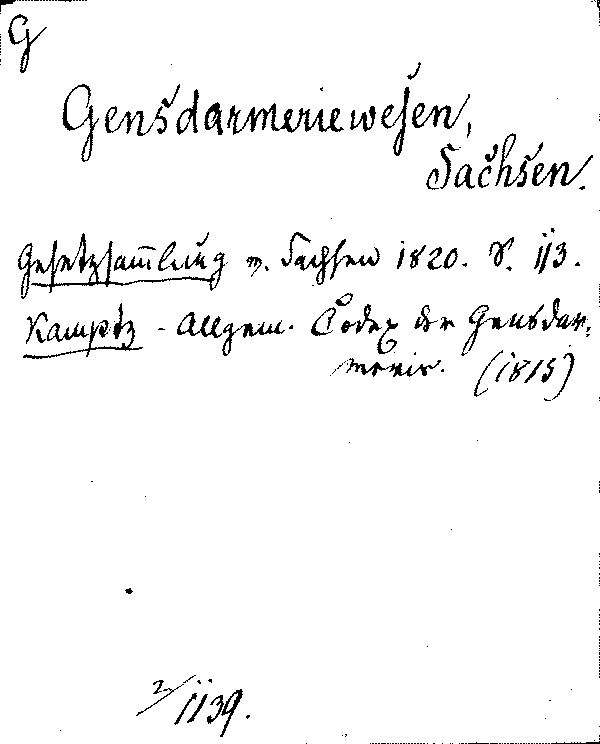 G
Gensdarmeriewesen,
Sachsen.
Gesetzsammlung v. Sachsen 1820. S. 113.
Kamptz - Allgem. Codex der Gensdar=
merie. (1815)
2/1139.